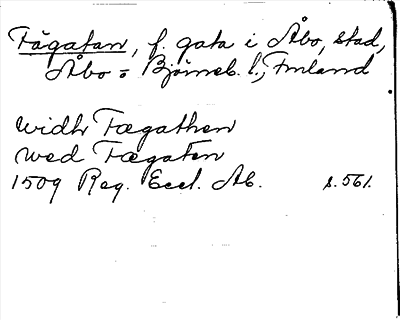 Fägatan, f. gata i Åbo, stad,
Åbo = Björneb. l., Finland
widh Fægathen
wed Fægaten
1509 Reg. Eccl. Ab. s. 561.